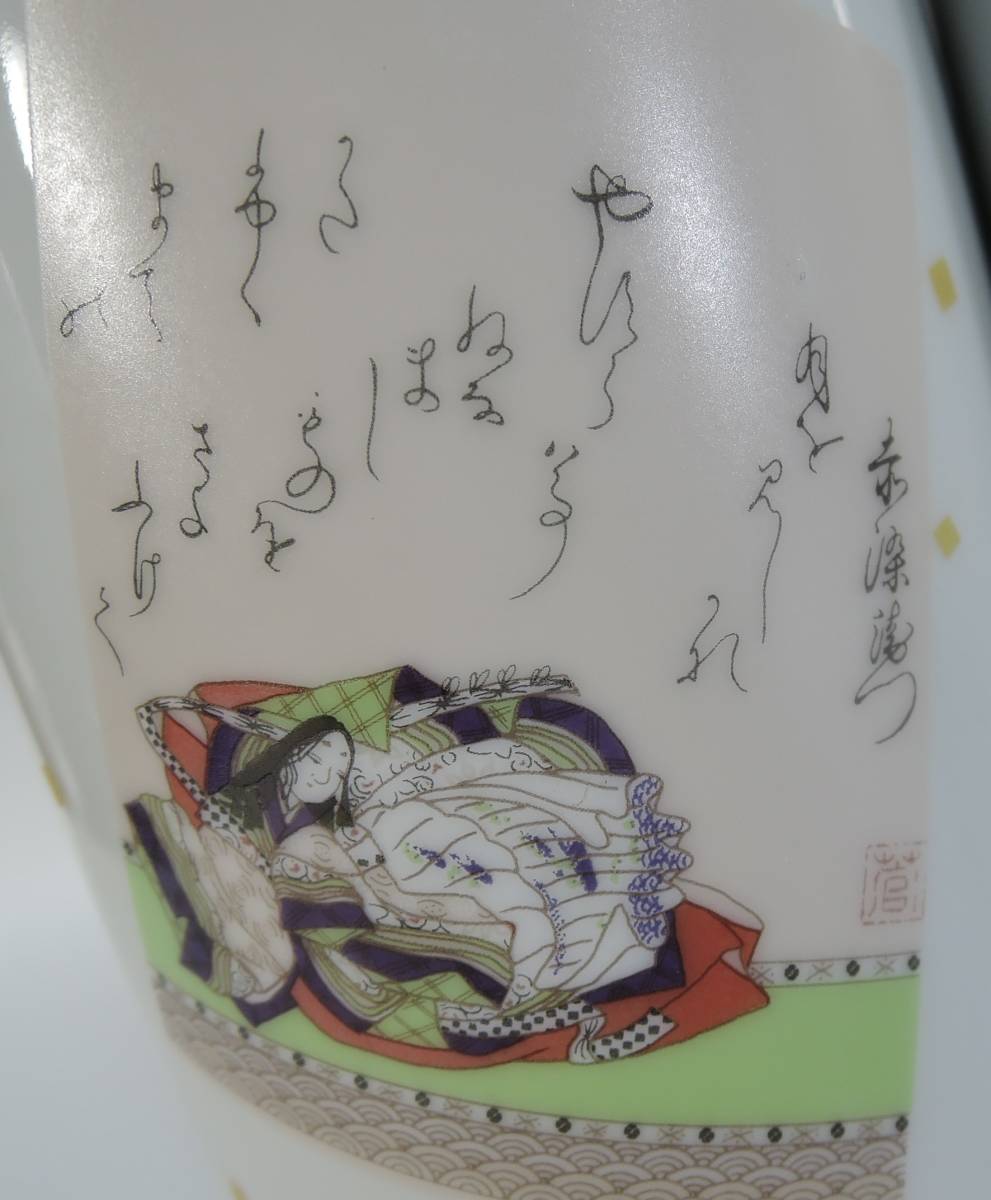 赤染衛門
やすら
はて
ねな
ま
し
もの
を
さよ
ふけ
て
かた
ふく
まて
の
月を
見し
かな